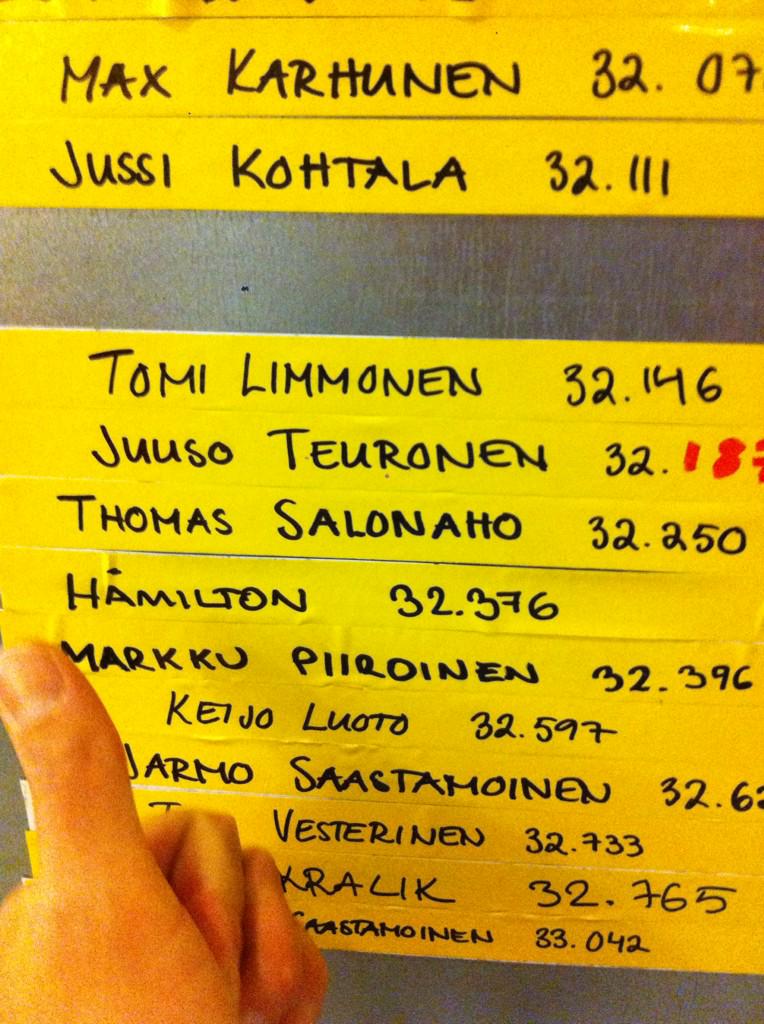 MAX KARHUNEN 32. 07
JUSSI KOHTALA 32.111
TOMI LIMMONEN 32.146
JUUSO TEURONEN 32.187
THOMAS SALONAHO 32.250
HÄMILTON 32.376
MARKKU PIIROINEN 32.396
KEIJO LUOTO 32.597
JARMO SAASTAMOINEN 32.62
VESTERINEN 32.733
KRALIK 32.765
SAASTAMOINEN 33.042